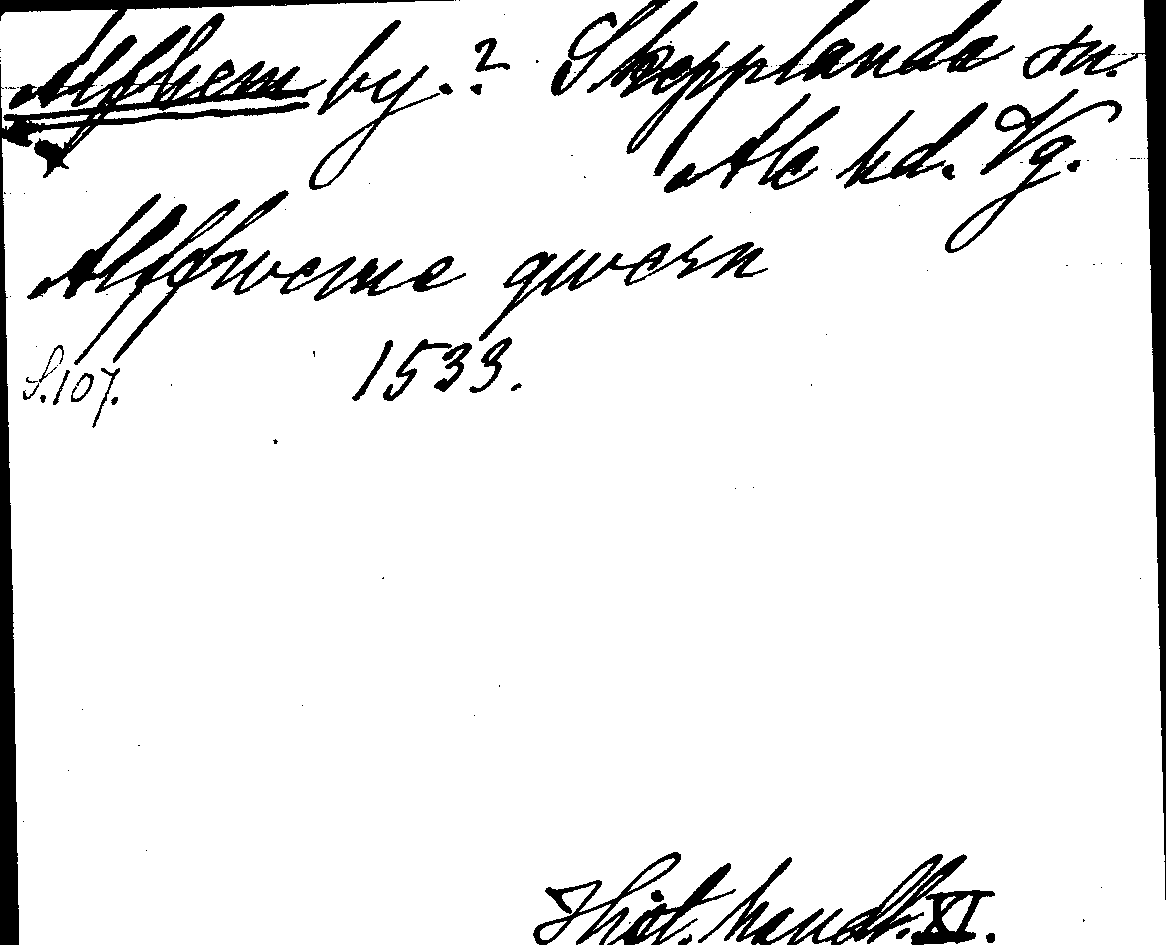 Alfhem by.? Skepplanda sn.
Ale hd. Vg.
Alfhweme qwern
S.107. 1533.
Hist. handl. XI.